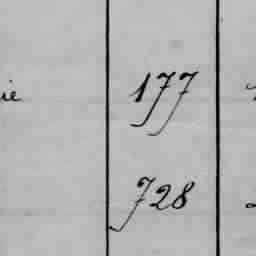 ie 177
728